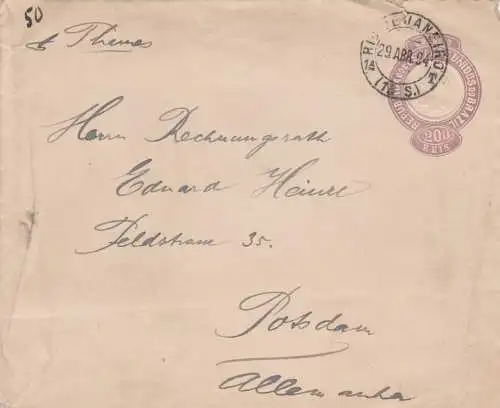 50
p Thames
RIO DE JANEIRO
29 ABR. 94
14 (1ª S.) T.
REPUBLICA DOS ESTADOS UNIDOS DO BRAZIL
200
REIS
Herrn Rechnungsrath
Eduard Heinze
Feldstrasse 35.
Potsdam
Allemanha